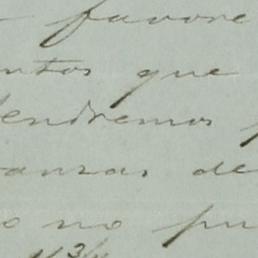 favore
ntos que
endremos
anzas de
o no pu